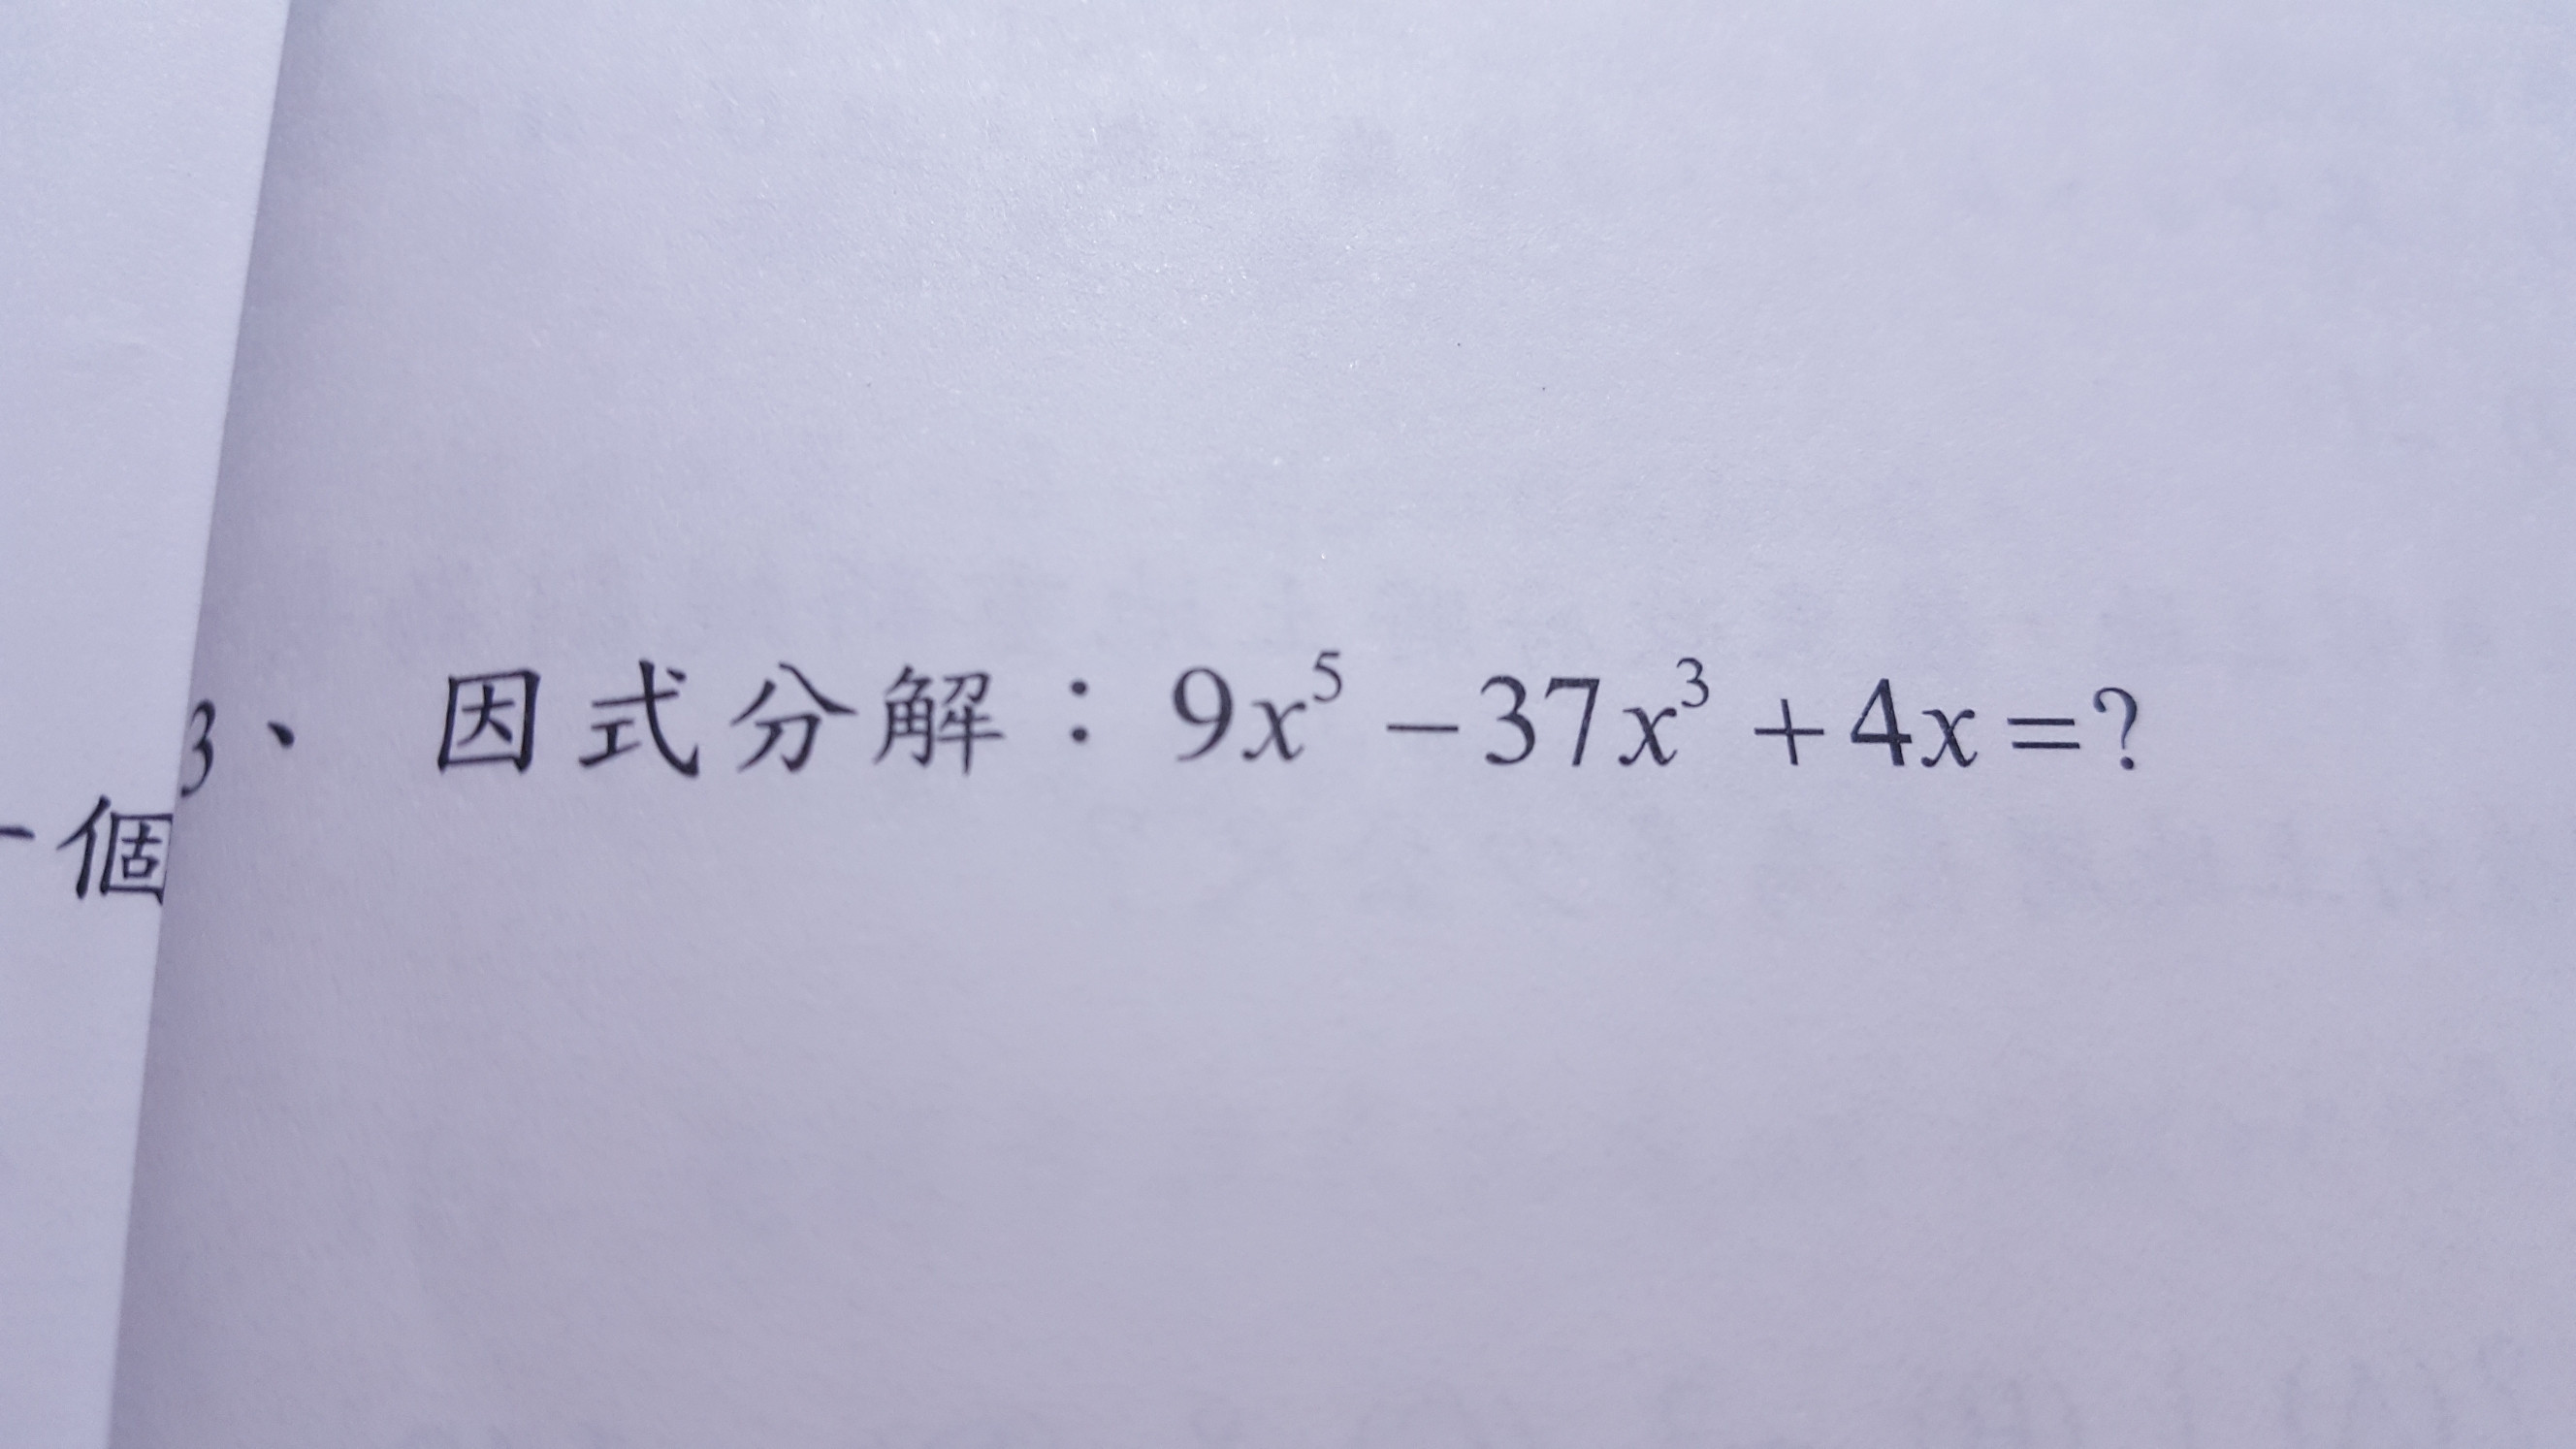 3、 因式分解：9x⁵ − 37x³ + 4x = ?
一個